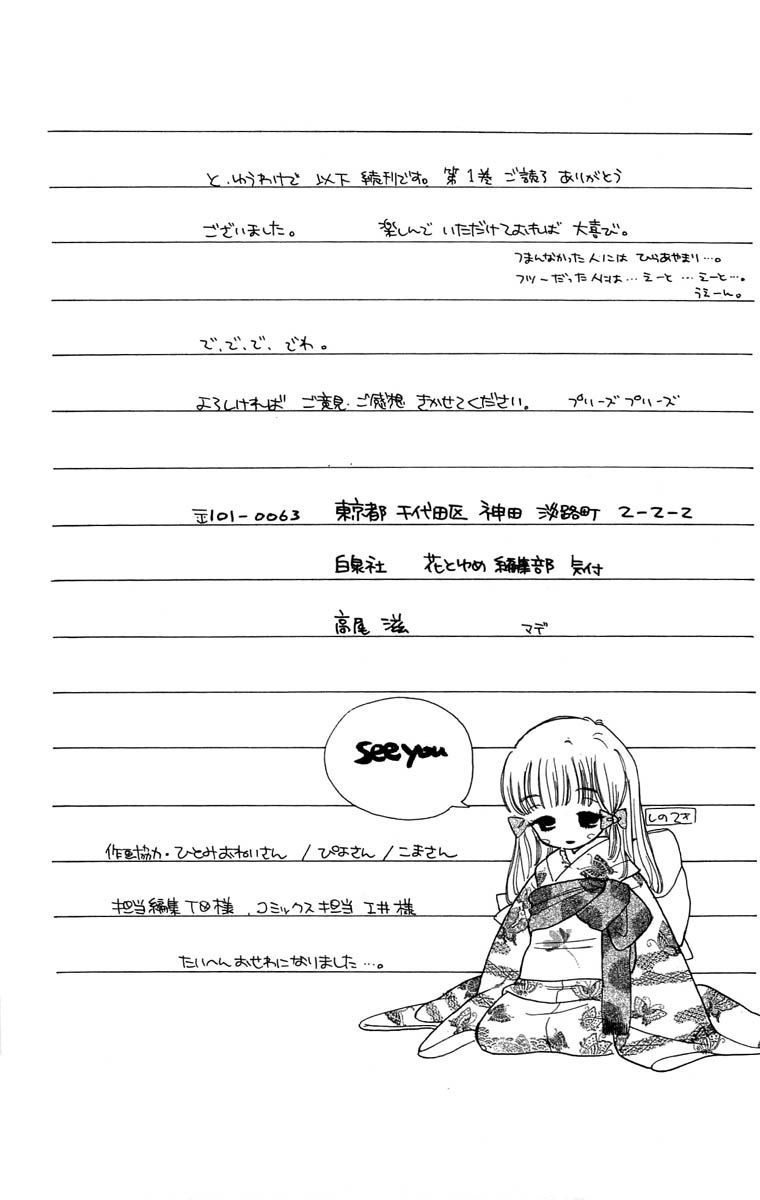 と、ゆうわけで 以下 続刊です。第1巻 ご読了 ありがとう
ございました。 楽しんで いただけておれば 大喜び。
つまんなかった人には ひらあやまり…。
フツーだった人には… えーと …えーと…。
うえーん。
で、で、で、でわ。
よろしければ ご意見・ご感想 きかせてください。 プリーズ プリーズ
〒101-0063 東京都 千代田区 神田 淡路町 2-2-2
白泉社 花とゆめ 編集部 気付
高尾 滋 マデ
see you
しのてさ
作画協力・ひとみおねいさん / ぴよさん / こまさん
担当編集 T 様、コミックス担当 工井 様
たいへん おせわになりました…。